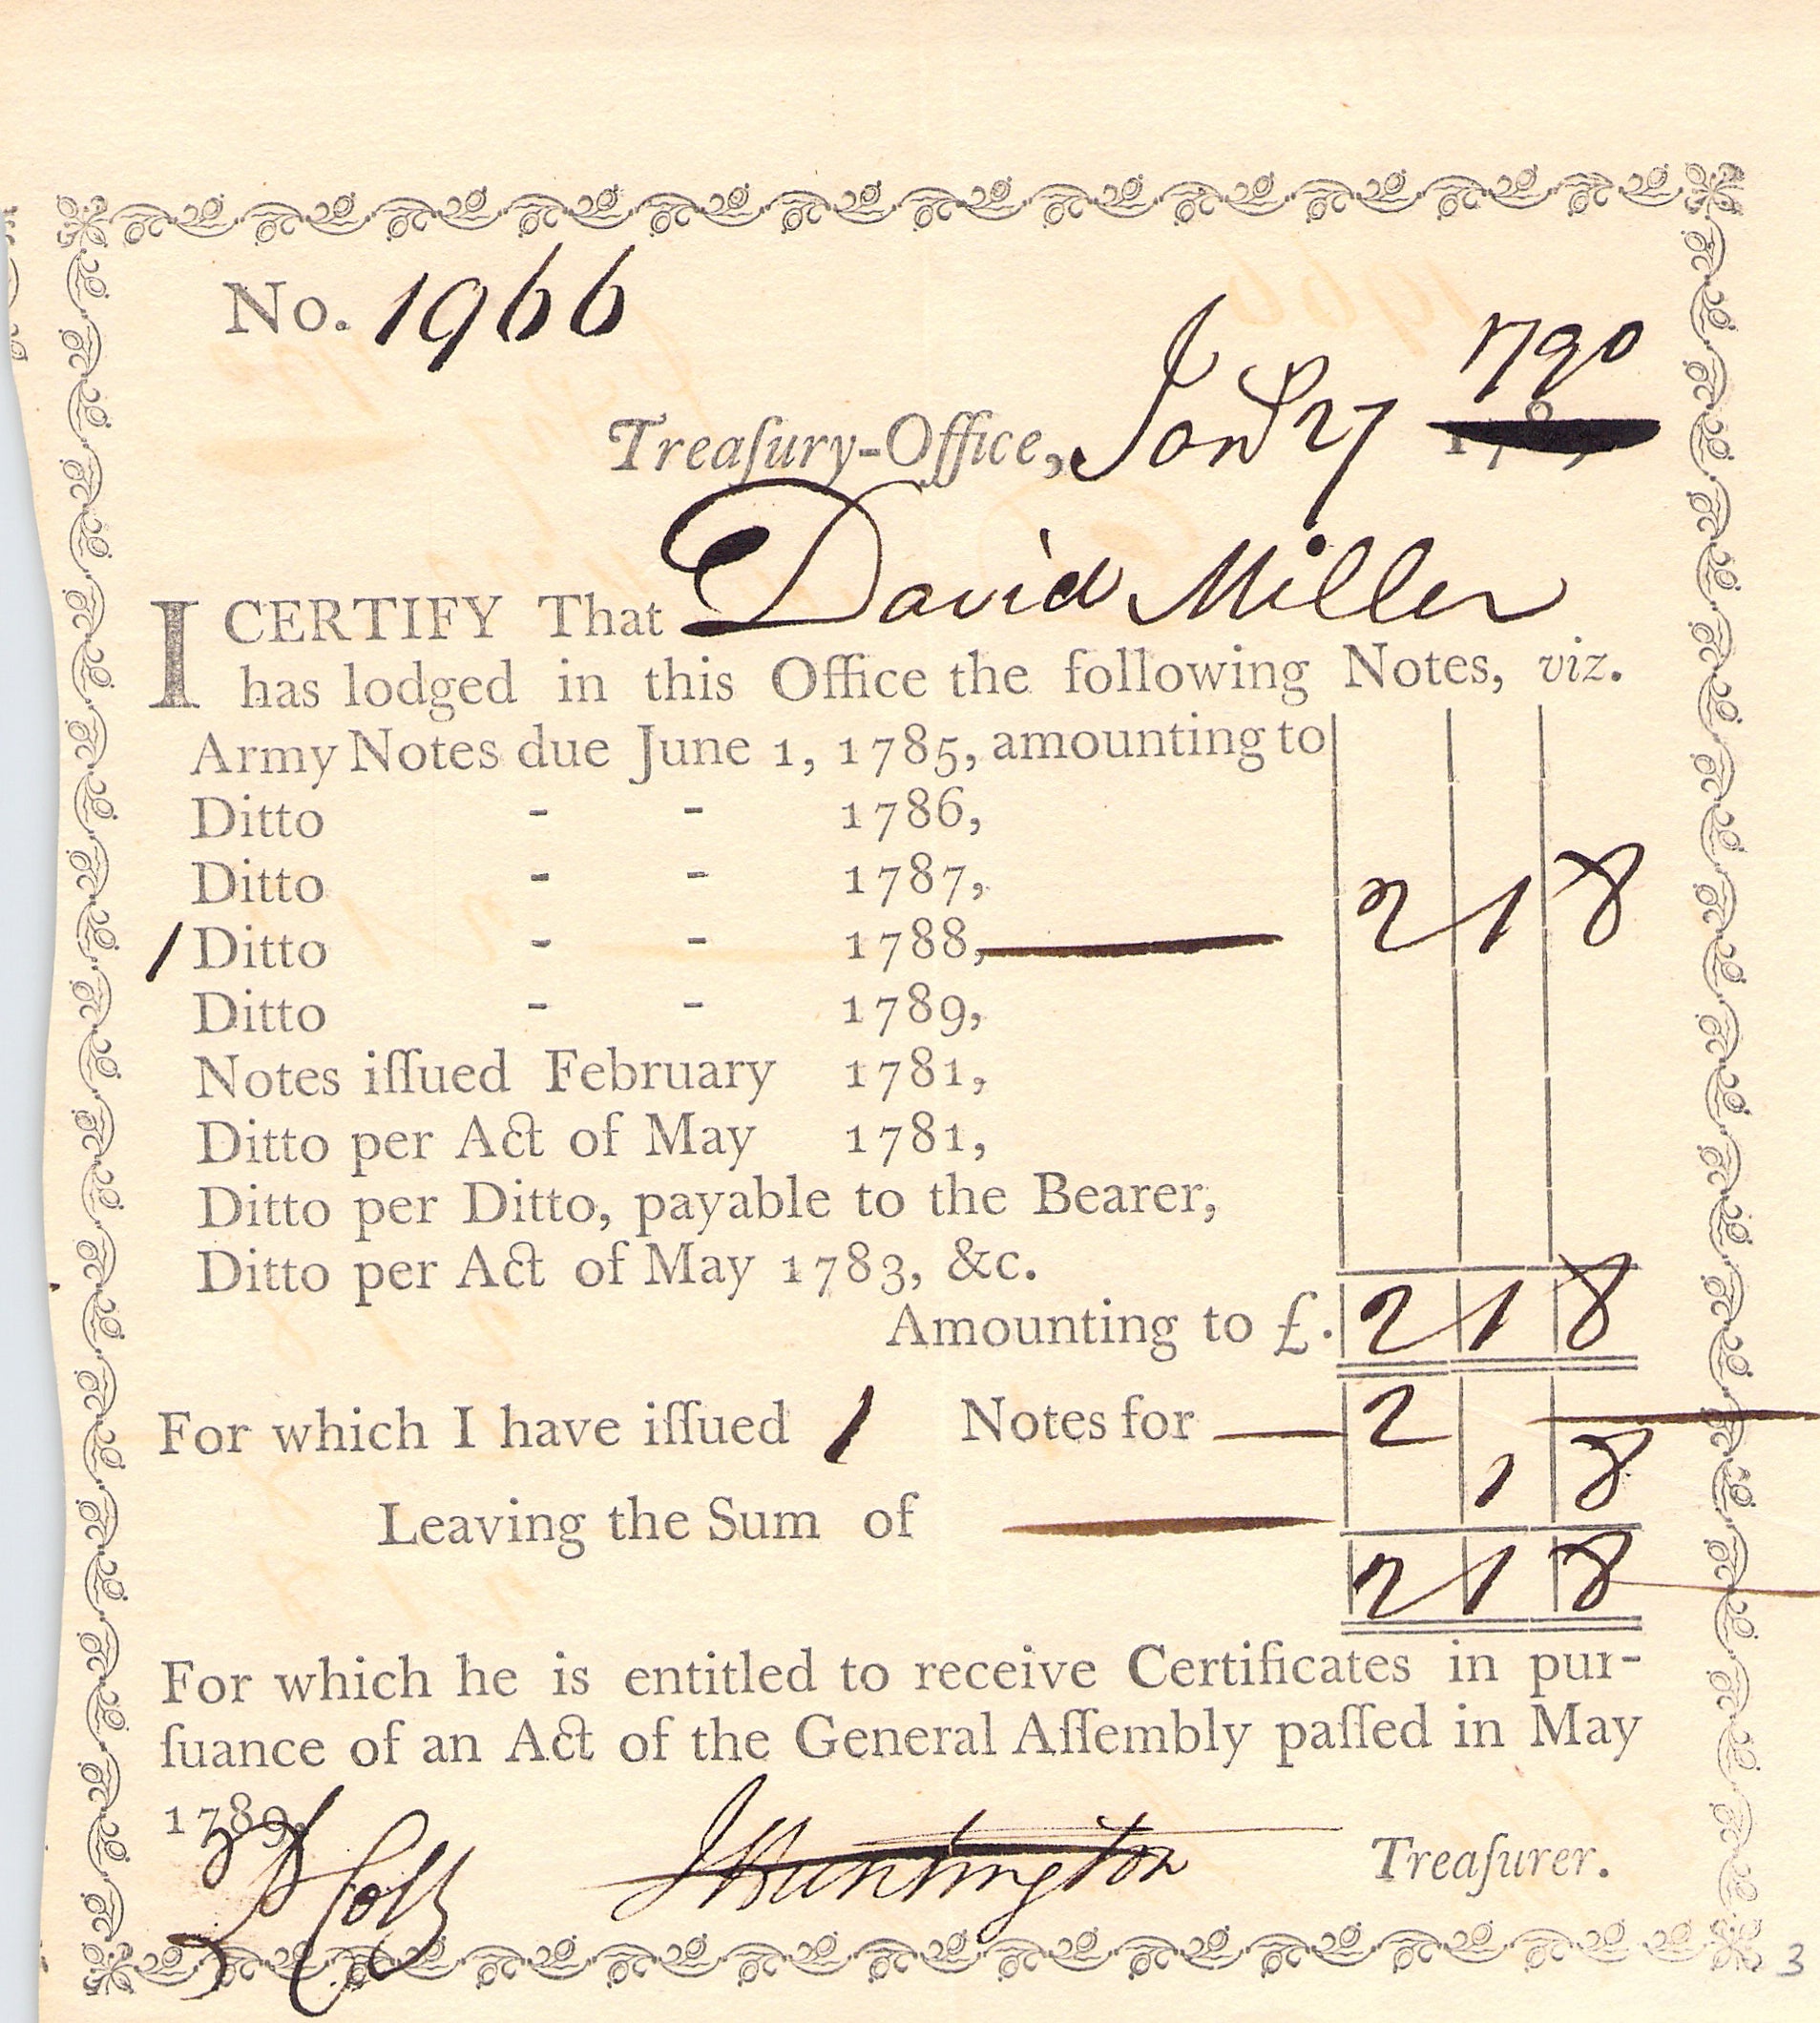 No. 1966
1790
Treaſury-Office, Jany 27
David Miller
I CERTIFY That
has lodged in this Office the following Notes, viz.
Army Notes due June 1, 1785, amounting to
Ditto - - 1786,
Ditto - - 1787,
1 Ditto - - 1788, 2 1 8
Ditto - - 1789,
Notes iſſued February 1781,
Ditto per Act of May 1781,
Ditto per Ditto, payable to the Bearer,
Ditto per Act of May 1783, &c.
Amounting to £. 2 1 8
For which I have iſſued 1 Notes for 2
Leaving the Sum of 1 8
2 1 8
For which he is entitled to receive Certificates in pur-
ſuance of an Act of the General Aſſembly paſſed in May
1789.
J Huntington Treaſurer.
3